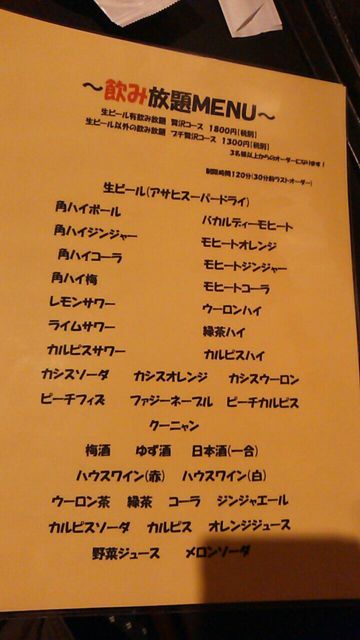 ～飲み放題MENU～
生ビール有飲み放題 贅沢コース 1800円(税別)
生ビール以外の飲み放題 プチ贅沢コース 1300円(税別)
3名様以上からのオーダーになります！
制限時間120分(30分前ラストオーダー)
生ビール(アサヒスーパードライ)
角ハイボール バカルディーモヒート
角ハイジンジャー モヒートオレンジ
角ハイコーラ モヒートジンジャー
角ハイ梅 モヒートコーラ
レモンサワー ウーロンハイ
ライムサワー 緑茶ハイ
カルピスサワー カルピスハイ
カシスソーダ カシスオレンジ カシスウーロン
ピーチフィズ ファジーネーブル ピーチカルピス
クーニャン
梅酒 ゆず酒 日本酒(一合)
ハウスワイン(赤) ハウスワイン(白)
ウーロン茶 緑茶 コーラ ジンジャエール
カルピスソーダ カルピス オレンジジュース
野菜ジュース メロンソーダ